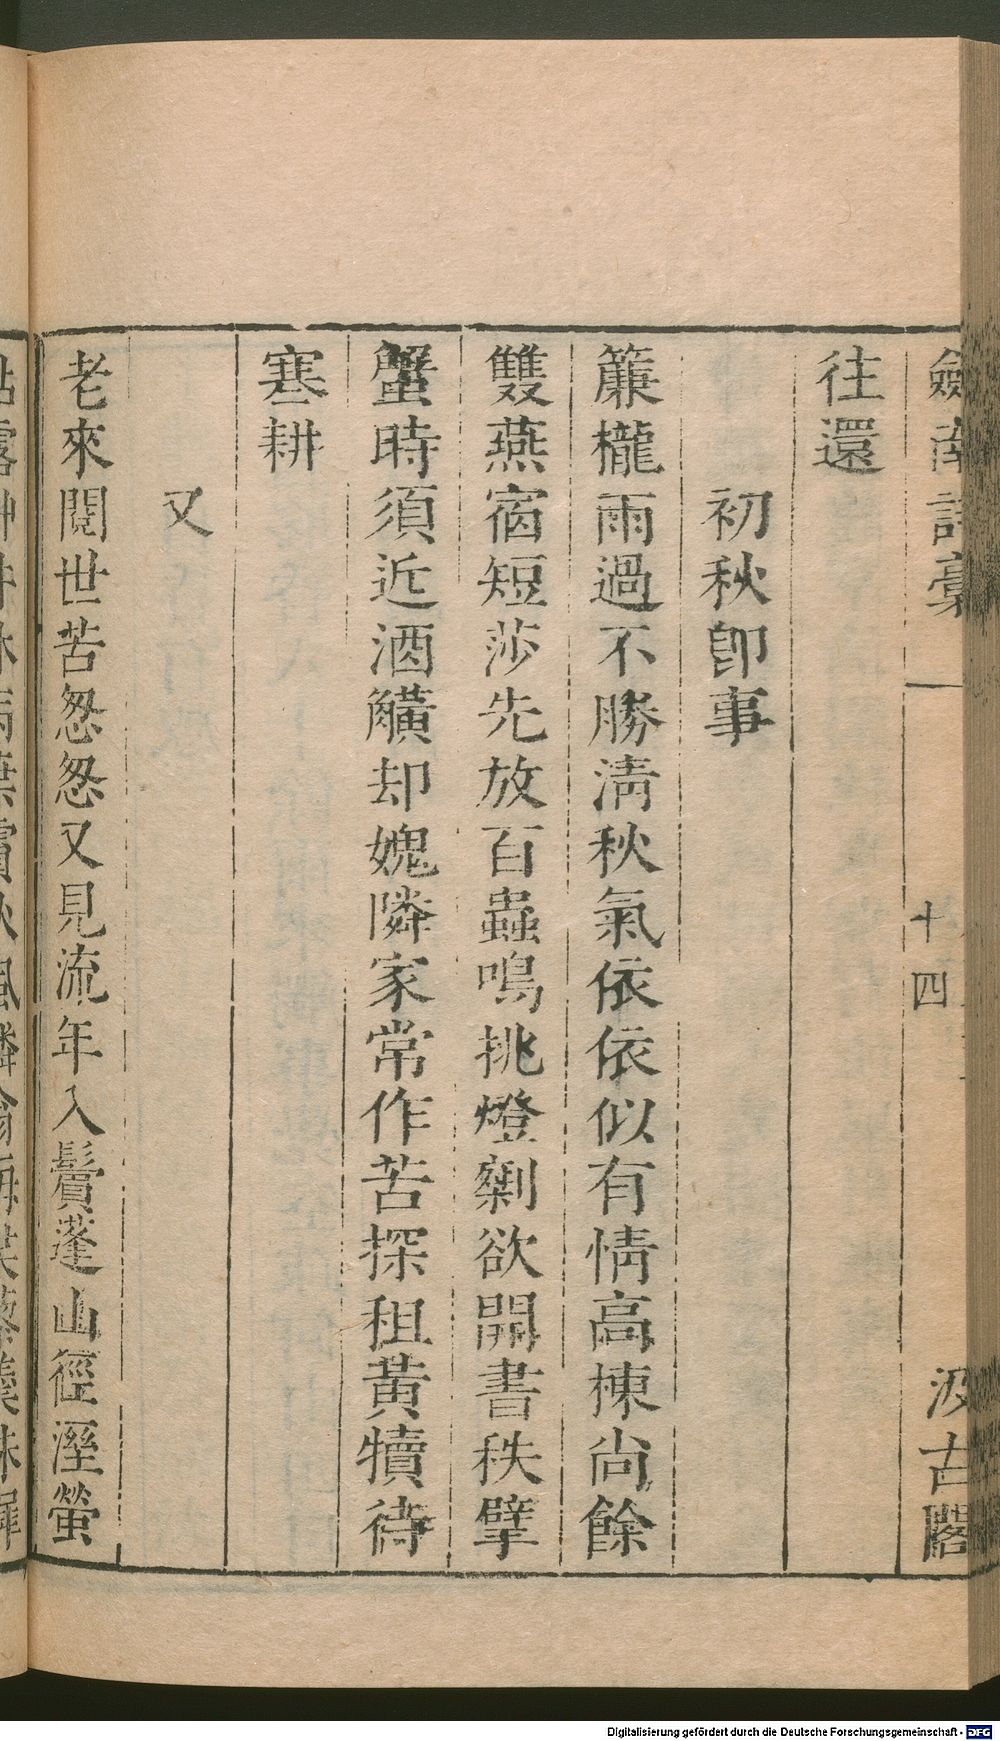 劍南詩稾
十四
汲古閣
往還
初秋卽事
簾櫳雨過不勝淸秋氣依依似有情高棟尚餘
雙燕宿短莎先放百蟲鳴挑燈剩欲開書秩擘
蟹時須近酒觵却媿隣家常作苦探租黃犢待
寋耕
又
老來閱世苦怱怱又見流年入鬢蓬山徑溼螢
Digitalisierung gefördert durch die Deutsche Forschungsgemeinschaft - DFG